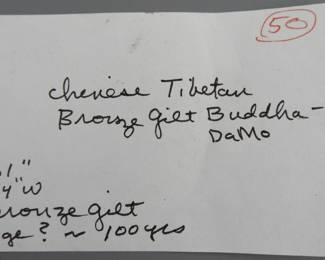 50
chinese Tibetan
Bronze gilt Buddha -
DaMo
1"
4"W
ronze gilt
ge? ~ 100 yrs